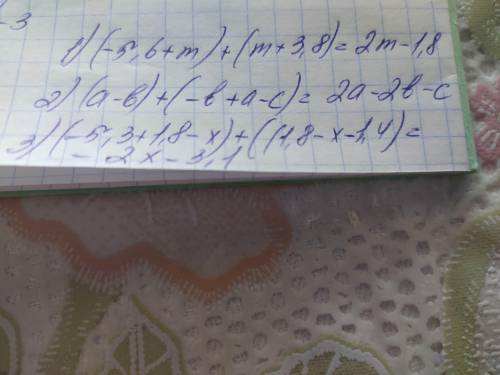 -3
1) (-5,6+m)+(m+3,8)=2m-1,8
2) (a-b)+(-b+a-c)= 2a-2b-c
3) (-5,3+1,8-x)+(1,8-x-1,4)=
- 2x-3,1